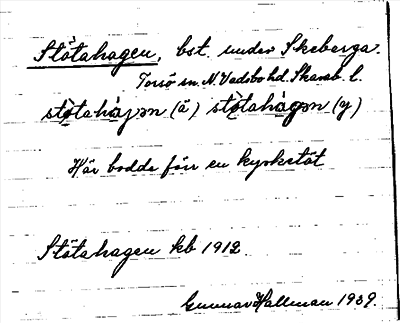 Stötahagen, bst. under Skeberga.
Torsö sn. N. Vadsbo hd. Skarab. l.
stø̀tahàjən (ä) stø̀tahàgən (y)
Här bodde förr en kyrkstöt
Stötahagen kb 1912
Gunnar Hallman 1939.